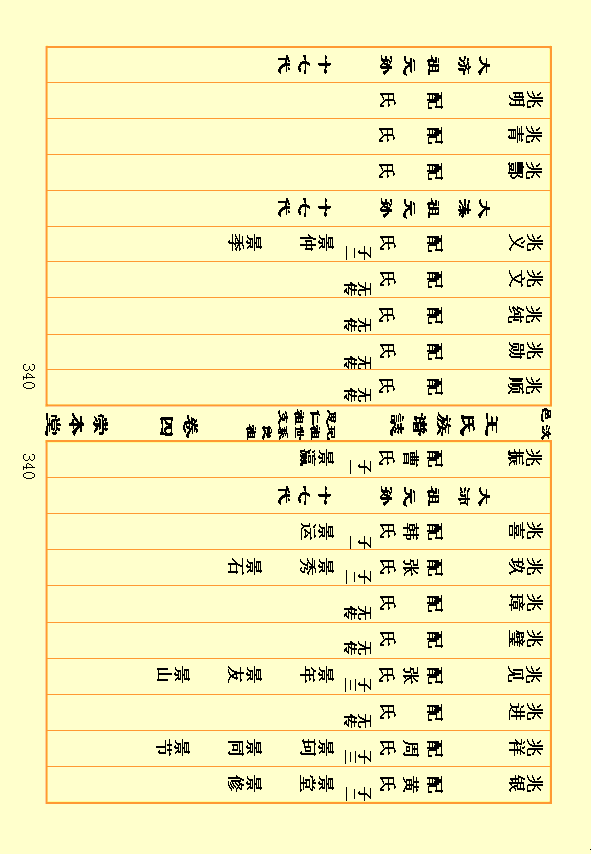 兆银 配黄氏 子二 景堂 景修
兆祥 配周氏 子三 景珂 景同 景节
兆进 配 氏 无传
兆见 配张氏 子三 景年 景友 景山
兆璧 配 氏 无传
兆璋 配 氏 无传
兆玖 配张氏 子二 景秀 景石
兆喜 配韩氏 子一 景运
大沛祖元孙 十七代
兆振 配曹氏 子一 景瀛
340
汶邑 王氏族谱誌 卷四 崇本堂
340
兆顺 配 氏 无传
兆勋 配 氏 无传
兆纯 配 氏 无传
兆文 配 氏 无传
兆义 配 氏 子二 景仲 景季
大溱祖元孙 十七代
兆酆 配 氏
兆青 配 氏
兆明 配 氏
大济祖元孙 十七代